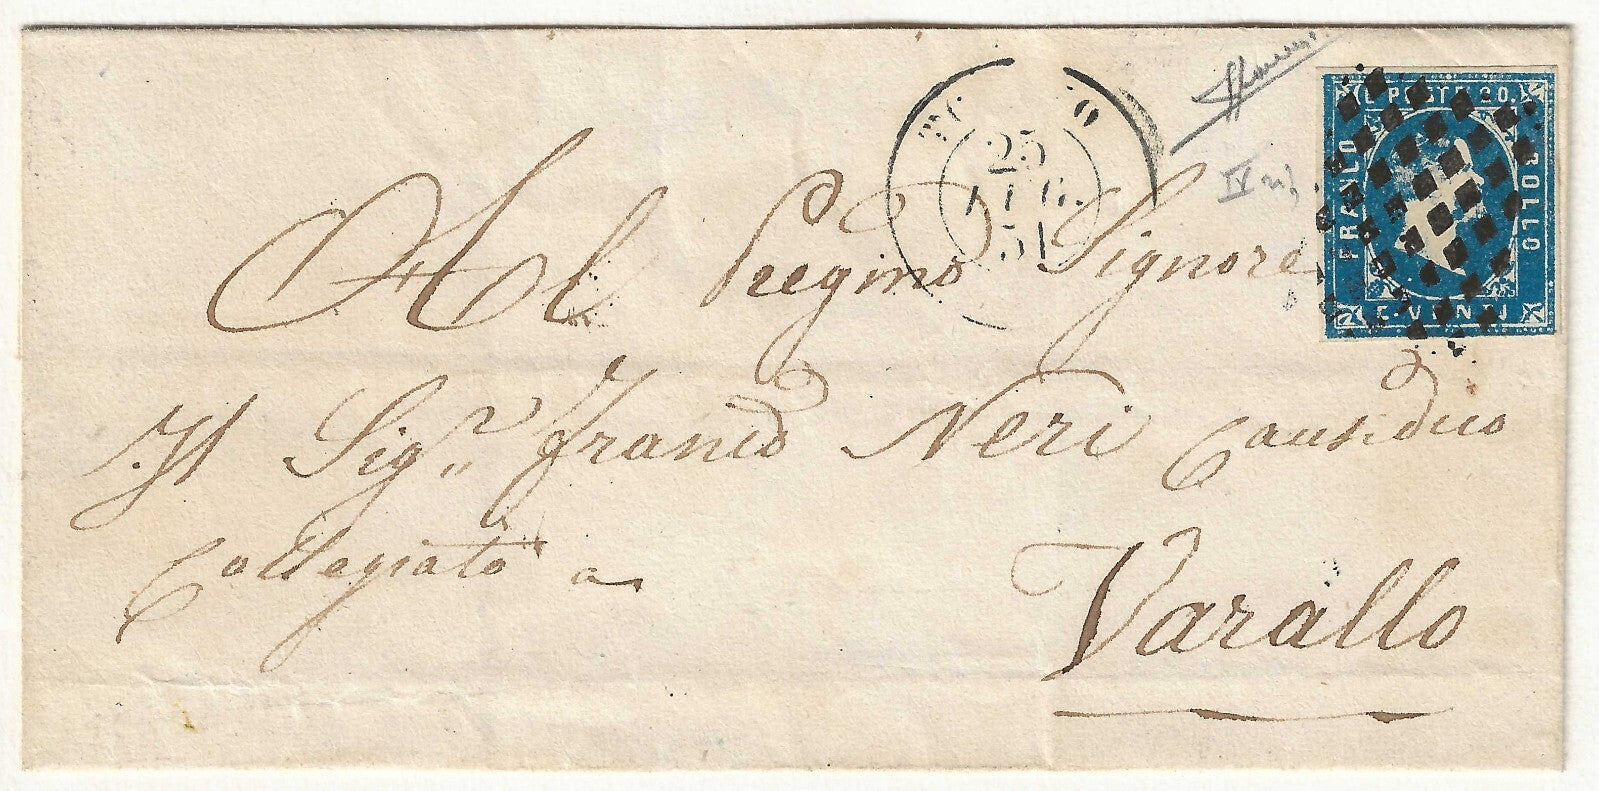 25
LUG.
51
C. POSTE 20.
FRANCO
BOLLO
C. VENTI
IV
Al Pregmo Signore
Il Sigr Franco Neri Causidico
Collegiato a
Varallo